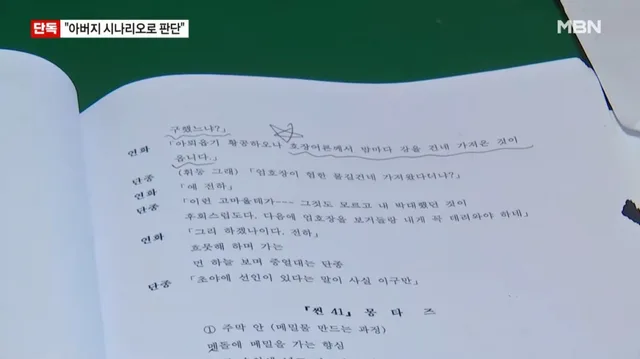 단독 "아버지 시나리오로 판단"
MBN
구했느냐?」
연화 「아뢰옵기 황공하오나 호장어른께서 밤마다 강을 건네 가져온 것이
옵니다.」
단종 (휘둥 그래) 「엄호장이 험한 물길건네 가져왔다더냐?」
연화 「예 전하」
단종 「이런 고마울데가--- 그것도 모르고 내 박대했던 것이
후회스럽도다. 다음에 엄호장을 보거들랑 내게 꼭 데려와야 하네」
연화 「그리 하겠나이다. 전하」
흐뭇해 하며 가는
먼 하늘 보며 중얼대는 단종
단종 「초야에 선인이 있다는 말이 사실 이구만」
『씬 41』 몽 타 즈
① 주막 안 (메밀물 만드는 과정)
맷돌에 메밀을 가는 향심